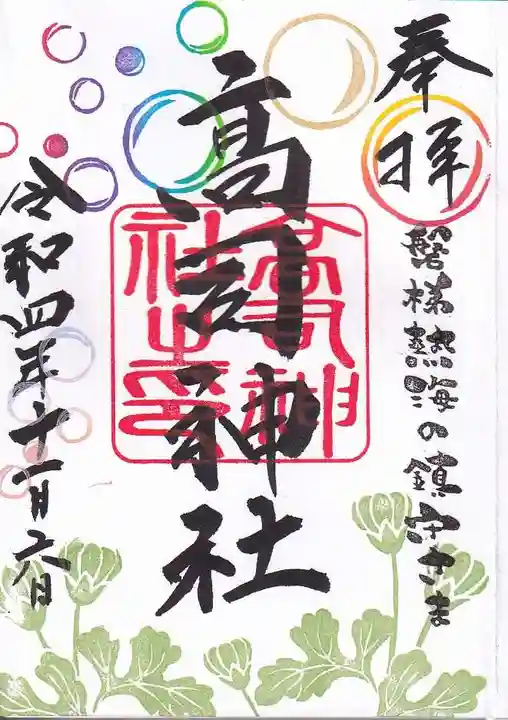 奉拝
磐梯熱海の鎮守さま
高司神社
高司神社之印
令和四年十一月六日